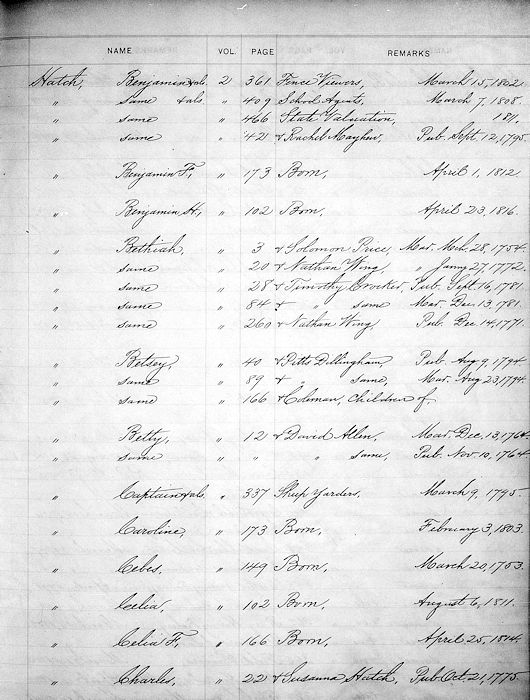 NAME VOL. PAGE REMARKS
Hatch, Benjamin & als. 2 361 Fence Viewers, March 15, 1802.
" same & als. " 409 School Agents, March 7, 1808.
" same " 466 State Valuation, 1811.
" same " 421 & Rachel Mayhew, Pub. Sept. 12, 1795.
" Benjamin F., " 173 Born, April 1, 1812
" Benjamin H., " 102 Born, April 23, 1816.
" Bethiah, " 3 & Solomon Price, Mar. Mch. 28, 1754.
" same " 20 & Nathan Wing, " Jany 27, 1772.
" same " 28 & Timothy Crocker, Pub. Sept. 16, 1781.
" same " 84 & " same Mar. Dec. 13, 1781.
" same " 260 & Nathan Wing, Pub. Dec. 14, 1771.
" Betsey, " 40 & Pitts Dillingham, Pub. Aug 9, 1794.
" same " 89 & " same, Mar. Aug 23, 1794.
" same " 166 & Coleman, Children of.
" Betty, " 12 & David Allen, Mar. Dec. 13, 1764.
" same " " " same, Pub. Nov. 10, 1764.
" Captain & als. " 337 Sheep Yarders, March 9, 1795.
" Caroline, " 173 Born, February 3, 1803.
" Cebes, " 149 Born, March 20, 1753.
" Celia, " 102 Born, August 6, 1811.
" Celia F., " 166 Born, April 25, 1814.
" Charles, " 22 & Susanna Hatch, Pub. Oct. 21, 1775